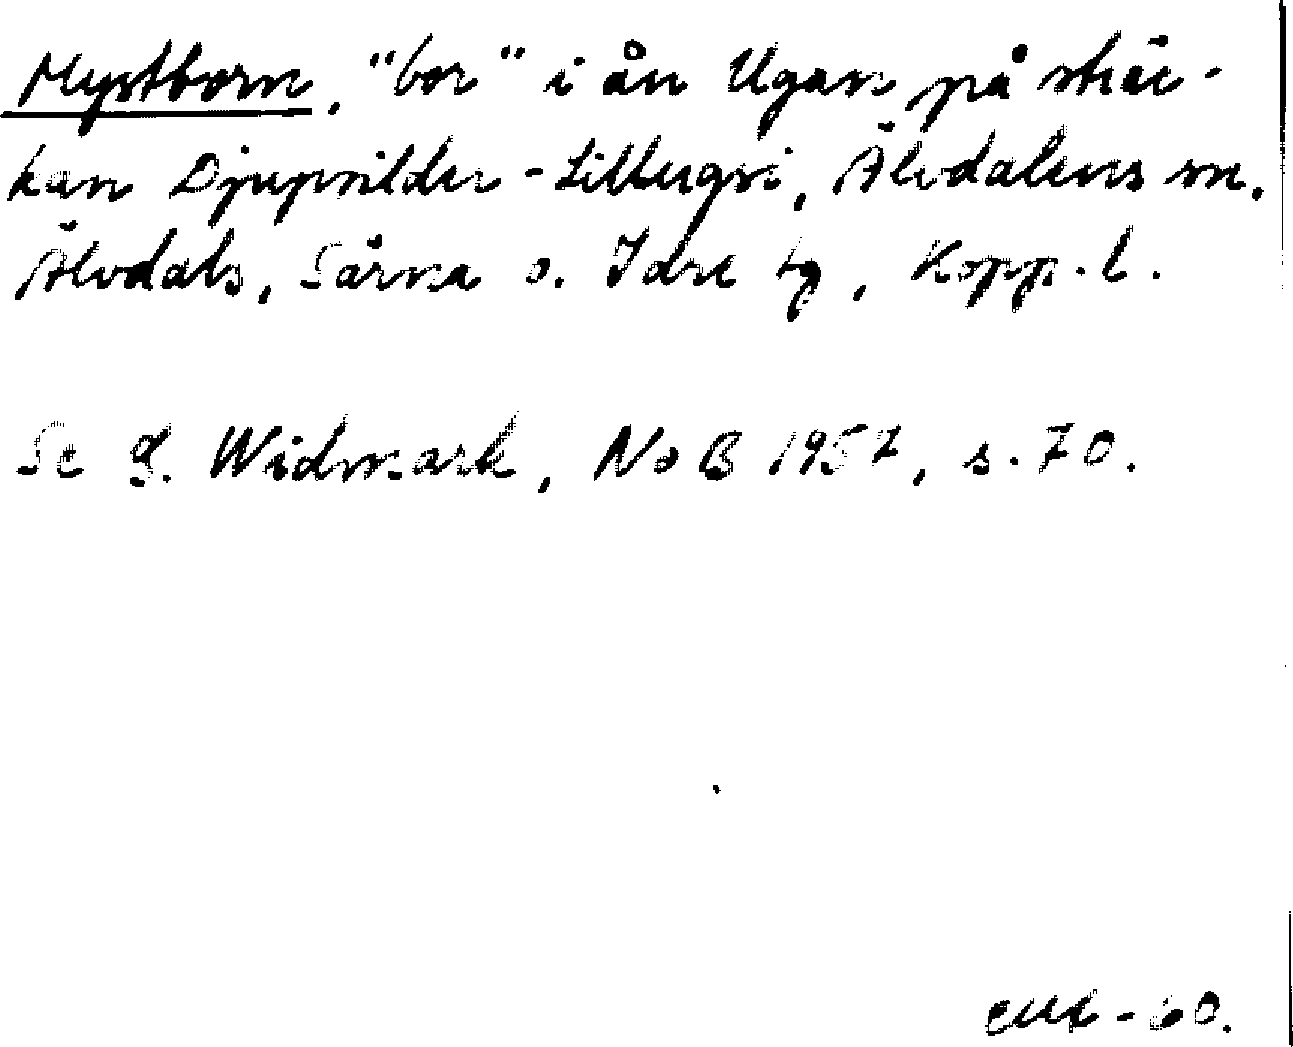 Mystborn, "bor" i ån Ugan på sträc-
kan Djupsilder - Lillugsi, Älvdalens sn.
Älvdals, Särna o. Idre tg, Kopp. l.
Se G. Widmark, NoB 1957, s. 70.
-60.